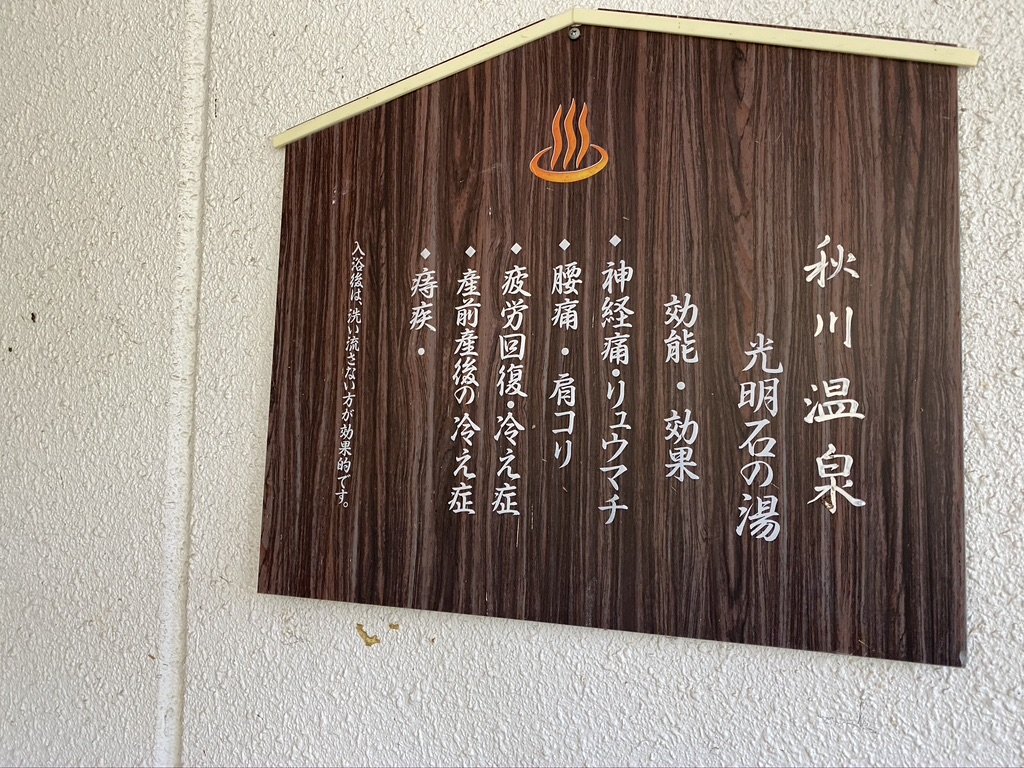 秋川温泉
光明石の湯
効能・効果
◆神経痛・リュウマチ
◆腰痛・肩コリ
◆疲労回復・冷え症
◆産前産後の冷え症
◆痔疾・
入浴後は、洗い流さない方が効果的です。